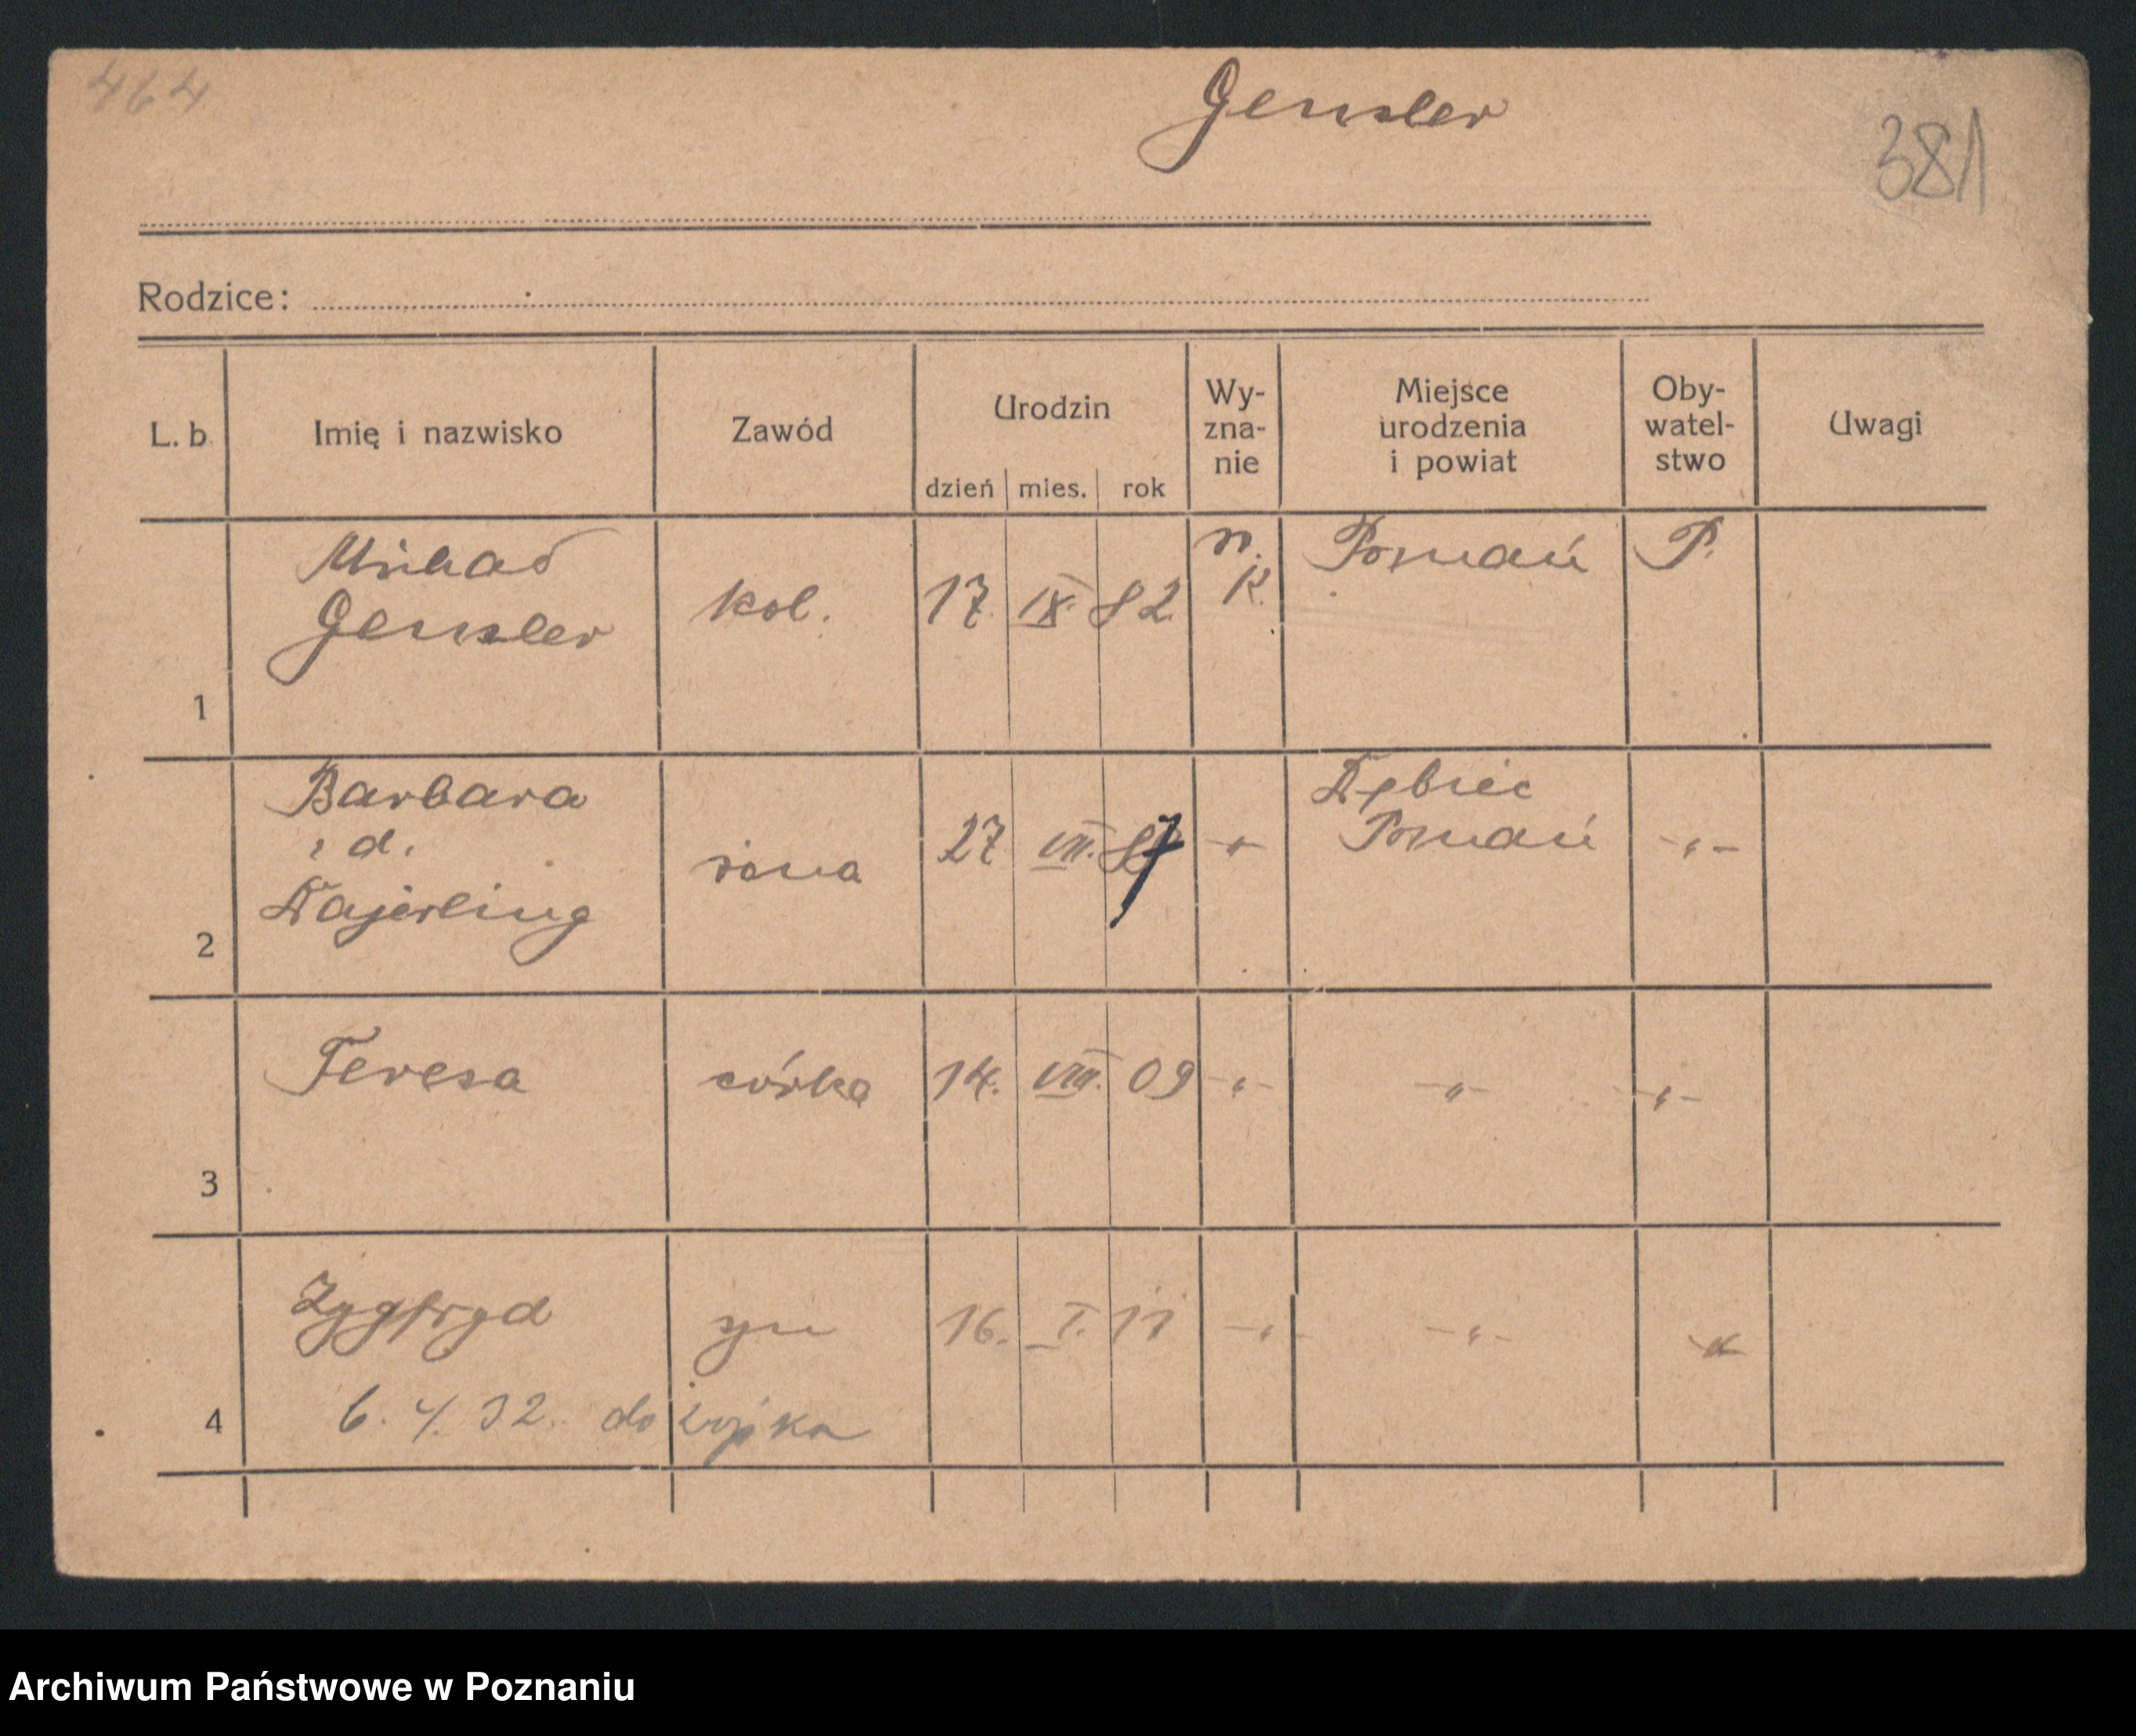 464
Gensler
381
Rodzice:
L. b. Imię i nazwisko Zawód Urodzin dzień mies. rok Wy-zna-nie Miejsce urodzenia i powiat Oby-watel-stwo Uwagi
1 Michał Gensler kol. 17. IX. 82. r. K. Poznań P.
2 Barbara z d. Bajerling żona 27 VII. 87 -"- Dębiec Poznań -"-
3 Teresa córka 14. VIII. 09 -"- -"- -"-
4 Zygfryd syn 16. I. 11 -"- -"- -"-
6. 4. 32. do wojska
Archiwum Państwowe w Poznaniu